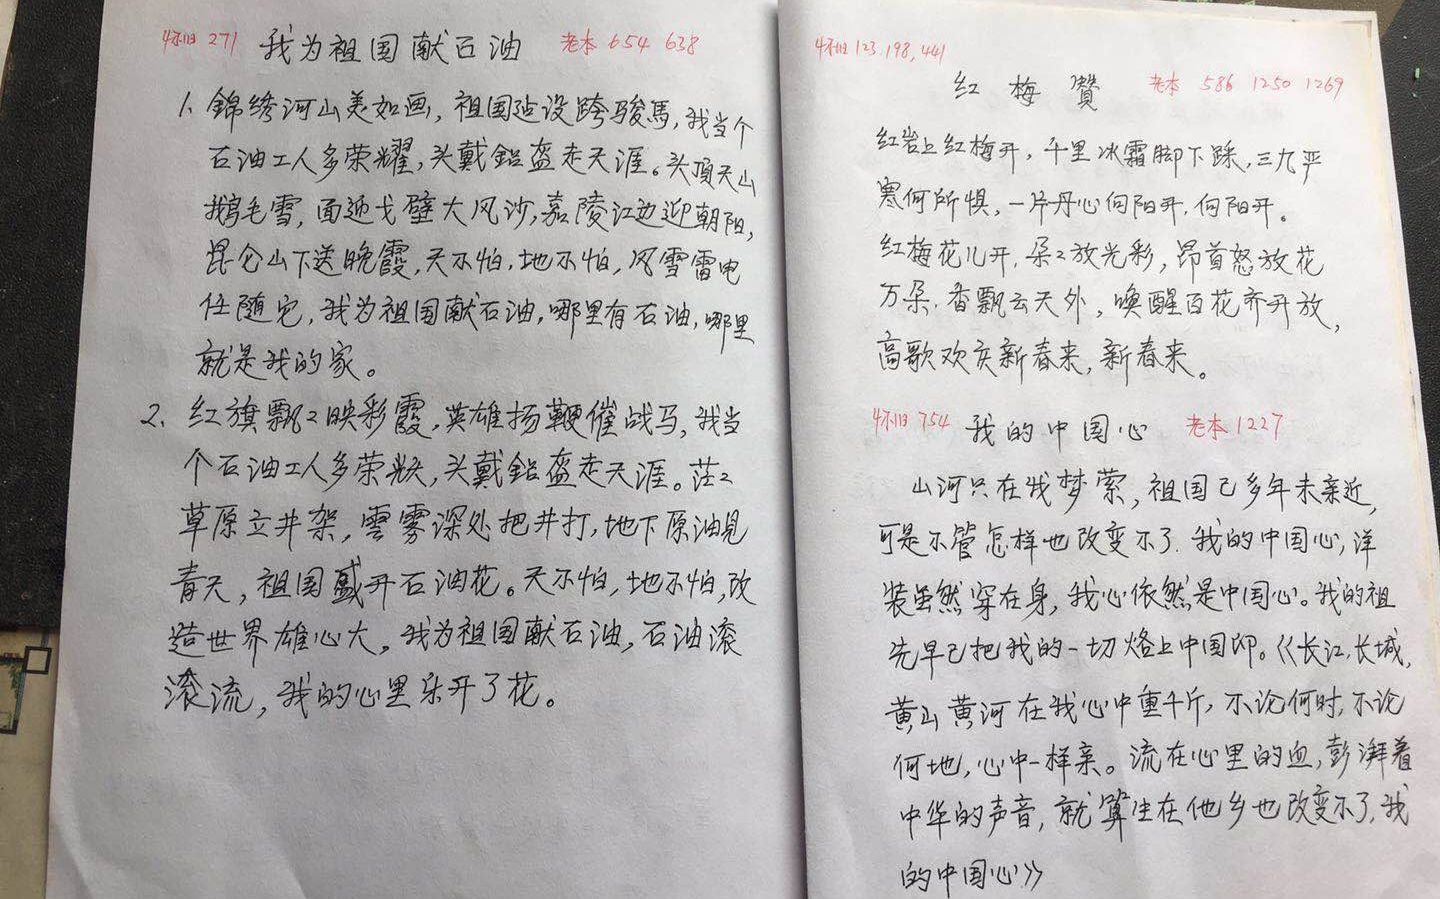 怀旧 271 我为祖国献石油 老本 654 638
1. 錦绣河山美如画, 祖国建设跨骏馬, 我当个
石油工人多荣耀, 头戴鋁盔走天涯。头顶天山
鹅毛雪, 面迎戈壁大风沙, 嘉陵江边迎朝阳,
昆仑山下送晚霞, 天不怕, 地不怕, 风雪雷电
任随它, 我为祖国献石油, 哪里有石油, 哪里
就是我的家。
2. 红旗飘飘映彩霞, 英雄扬鞭催战马, 我当
个石油工人多荣耀, 头戴鋁盔走天涯。茫茫
草原立井架, 雲雾深处把井打, 地下原油見
青天, 祖国盛开石油花。天不怕, 地不怕, 改
造世界雄心大, 我为祖国献石油, 石油滚
滚流, 我的心里乐开了花。
怀旧 123.198,441
红梅赞 老本 586 1250 1269
红岩上红梅开, 千里冰霜脚下踩, 三九严
寒何所惧, 一片丹心向阳开, 向阳开。
红梅花儿开, 朵朵放光彩, 昂首怒放花
万朵, 香飘云天外, 唤醒百花齐开放,
高歌欢庆新春来, 新春来。
怀旧 754 我的中国心 老本 1227
山河只在我梦萦, 祖国已多年未亲近,
可是不管怎样也改变不了, 我的中国心, 洋
装虽然穿在身, 我心依然是中国心。我的祖
先早已把我的一切烙上中国印。《长江, 长城,
黄山黄河在我心中重千斤, 不论何时, 不论
何地, 心中一样亲。流在心里的血, 彭湃着
中华的声音, 就算生在他乡也改变不了, 我
的中国心》